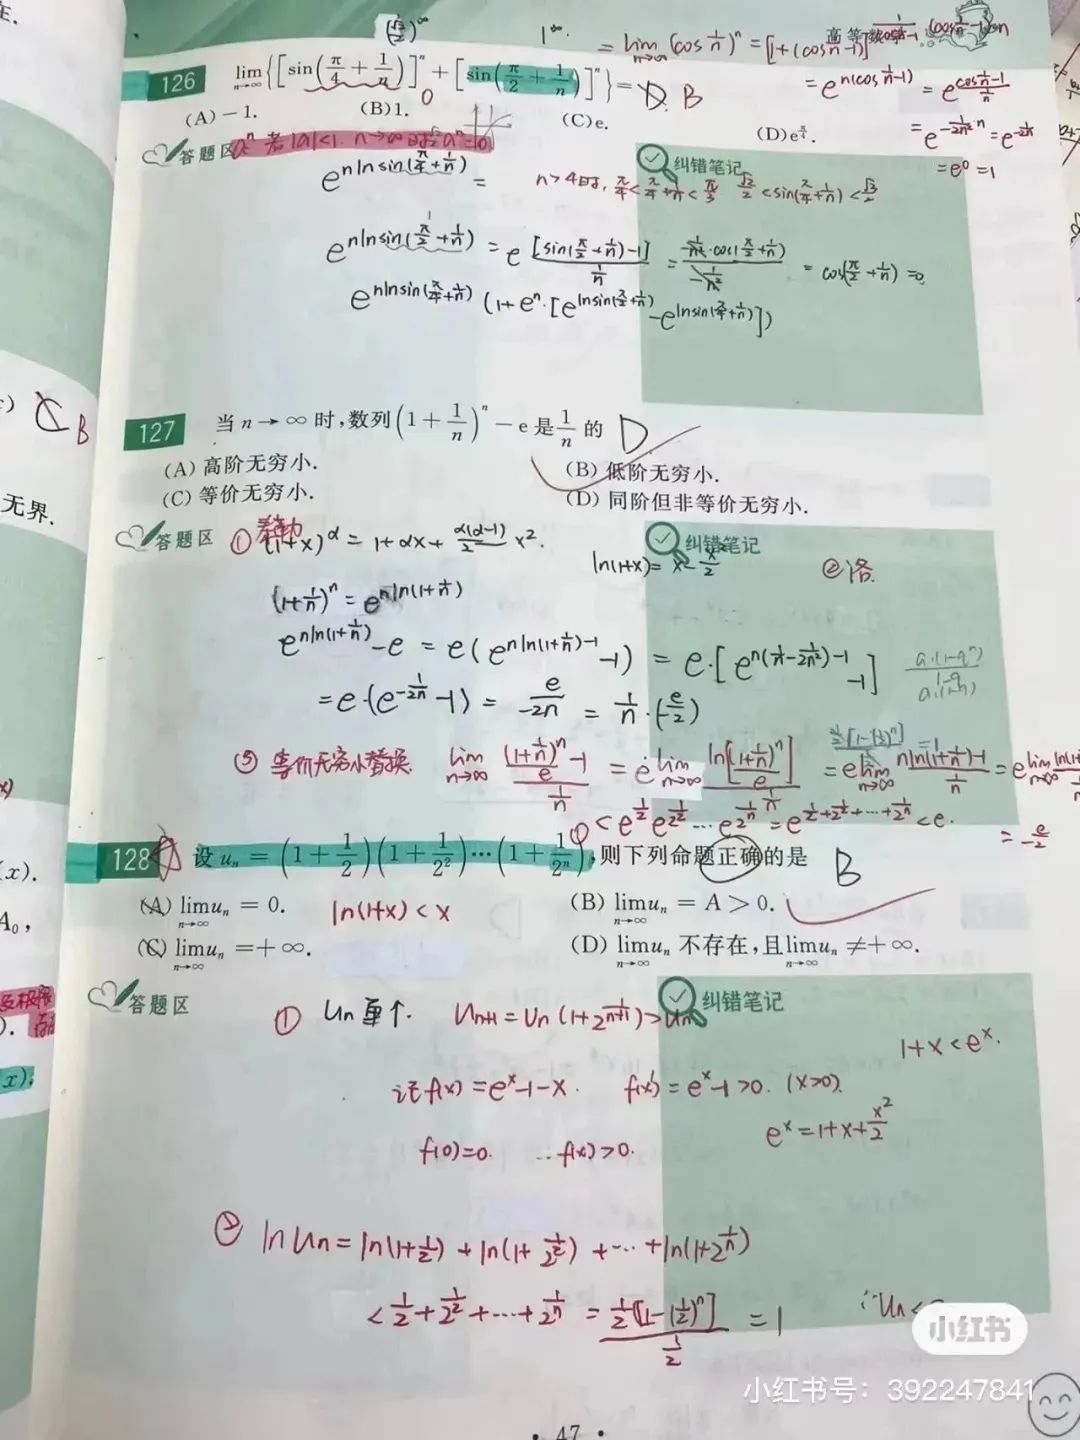 (√2/2)^∞ 1^∞. = lim n→∞ (cos 1/n)^n = [1+(cos 1/n -1)] 高等数学
126 lim n→∞ {[sin(π/4 + 1/n)]^n + [sin(π/2 + 1/n)]^n} = B
0
= e^{n(cos 1/n -1)} = e^{(cos 1/n -1)/(1/n)}
(A) -1. (B) 1. (C) e. (D) e^{π/4}.
= e^{-1/2n² ·n} = e^{-1/2n}
= e^0 = 1
答题区 a^n 若|a|<1. n→∞时 a^n=0
纠错笔记
e^{n ln sin(π/4+1/n)} =
n>4时, π/4 < π/4+1/n < π/3 √2/2 < sin(π/4+1/n) < √3/2
e^{n ln sin(π/2+1/n)} = e [sin(π/2+1/n)-1] / (1/n) = -1/n²·cos(π/2+1/n) / -1/n² = cos(π/2+1/n) = 0
e^{n ln sin(π/4+1/n)} (1+e^n·[e^{ln sin(π/2+1/n)} - e^{ln sin(π/4+1/n)}])
C B
127 当 n→∞ 时,数列(1+1/n)^n - e 是 1/n 的 D
(A) 高阶无穷小. (B) 低阶无穷小.
(C) 等价无穷小. (D) 同阶但非等价无穷小.
无界.
答题区 ① (1+x)^α = 1+αx+ α(α-1)/2 x².
纠错笔记
ln(1+x) = x - x²/2 ②洛.
(1+1/n)^n = e^{n ln(1+1/n)}
e^{n ln(1+1/n)} - e = e(e^{n ln(1+1/n)-1} -1) = e·[e^{n(1/n - 1/2n²)-1} -1]
= e·(e^{-1/2n} -1) = e/-2n = 1/n·(e/-2)
③ 等价无穷小替换. lim n→∞ ((1+1/n)^n/e - 1)/(1/n) = e lim n→∞ ln[(1+1/n)^n/e]/(1/n) = e lim n→∞ (n ln(1+1/n)-1)/(1/n) = e lim n→∞
① < e^{1/2} e^{1/2²} … e^{1/2^n} = e^{1/2+1/2²+…+1/2^n} < e.
= e/-2
128 设 u_n = (1+1/2)(1+1/2²)…(1+1/2^n),则下列命题正确的是 B
(A) lim n→∞ u_n = 0. ln(1+x) < x (B) lim n→∞ u_n = A > 0.
(C) lim n→∞ u_n = +∞. (D) lim n→∞ u_n 不存在,且 lim n→∞ u_n ≠ +∞.
答题区
纠错笔记
① Un单个. U_{n+1} = U_n (1+2^{1/n+1}) > U_n
1+x < e^x.
记 f(x) = e^x-1-x. f'(x) = e^x-1 > 0. (x>0).
e^x = 1+x+x²/2
f(0)=0. ∴ f(x)>0.
② ln Un = ln(1+1/2) + ln(1+1/2²) + … + ln(1+2^{1/n})
< 1/2 + 1/2² + … + 1/2^n = 1/2[1-(1/2)^n] / (1/2) = 1
∴ Un <
小红书
小红书号：392247841
· 47 ·